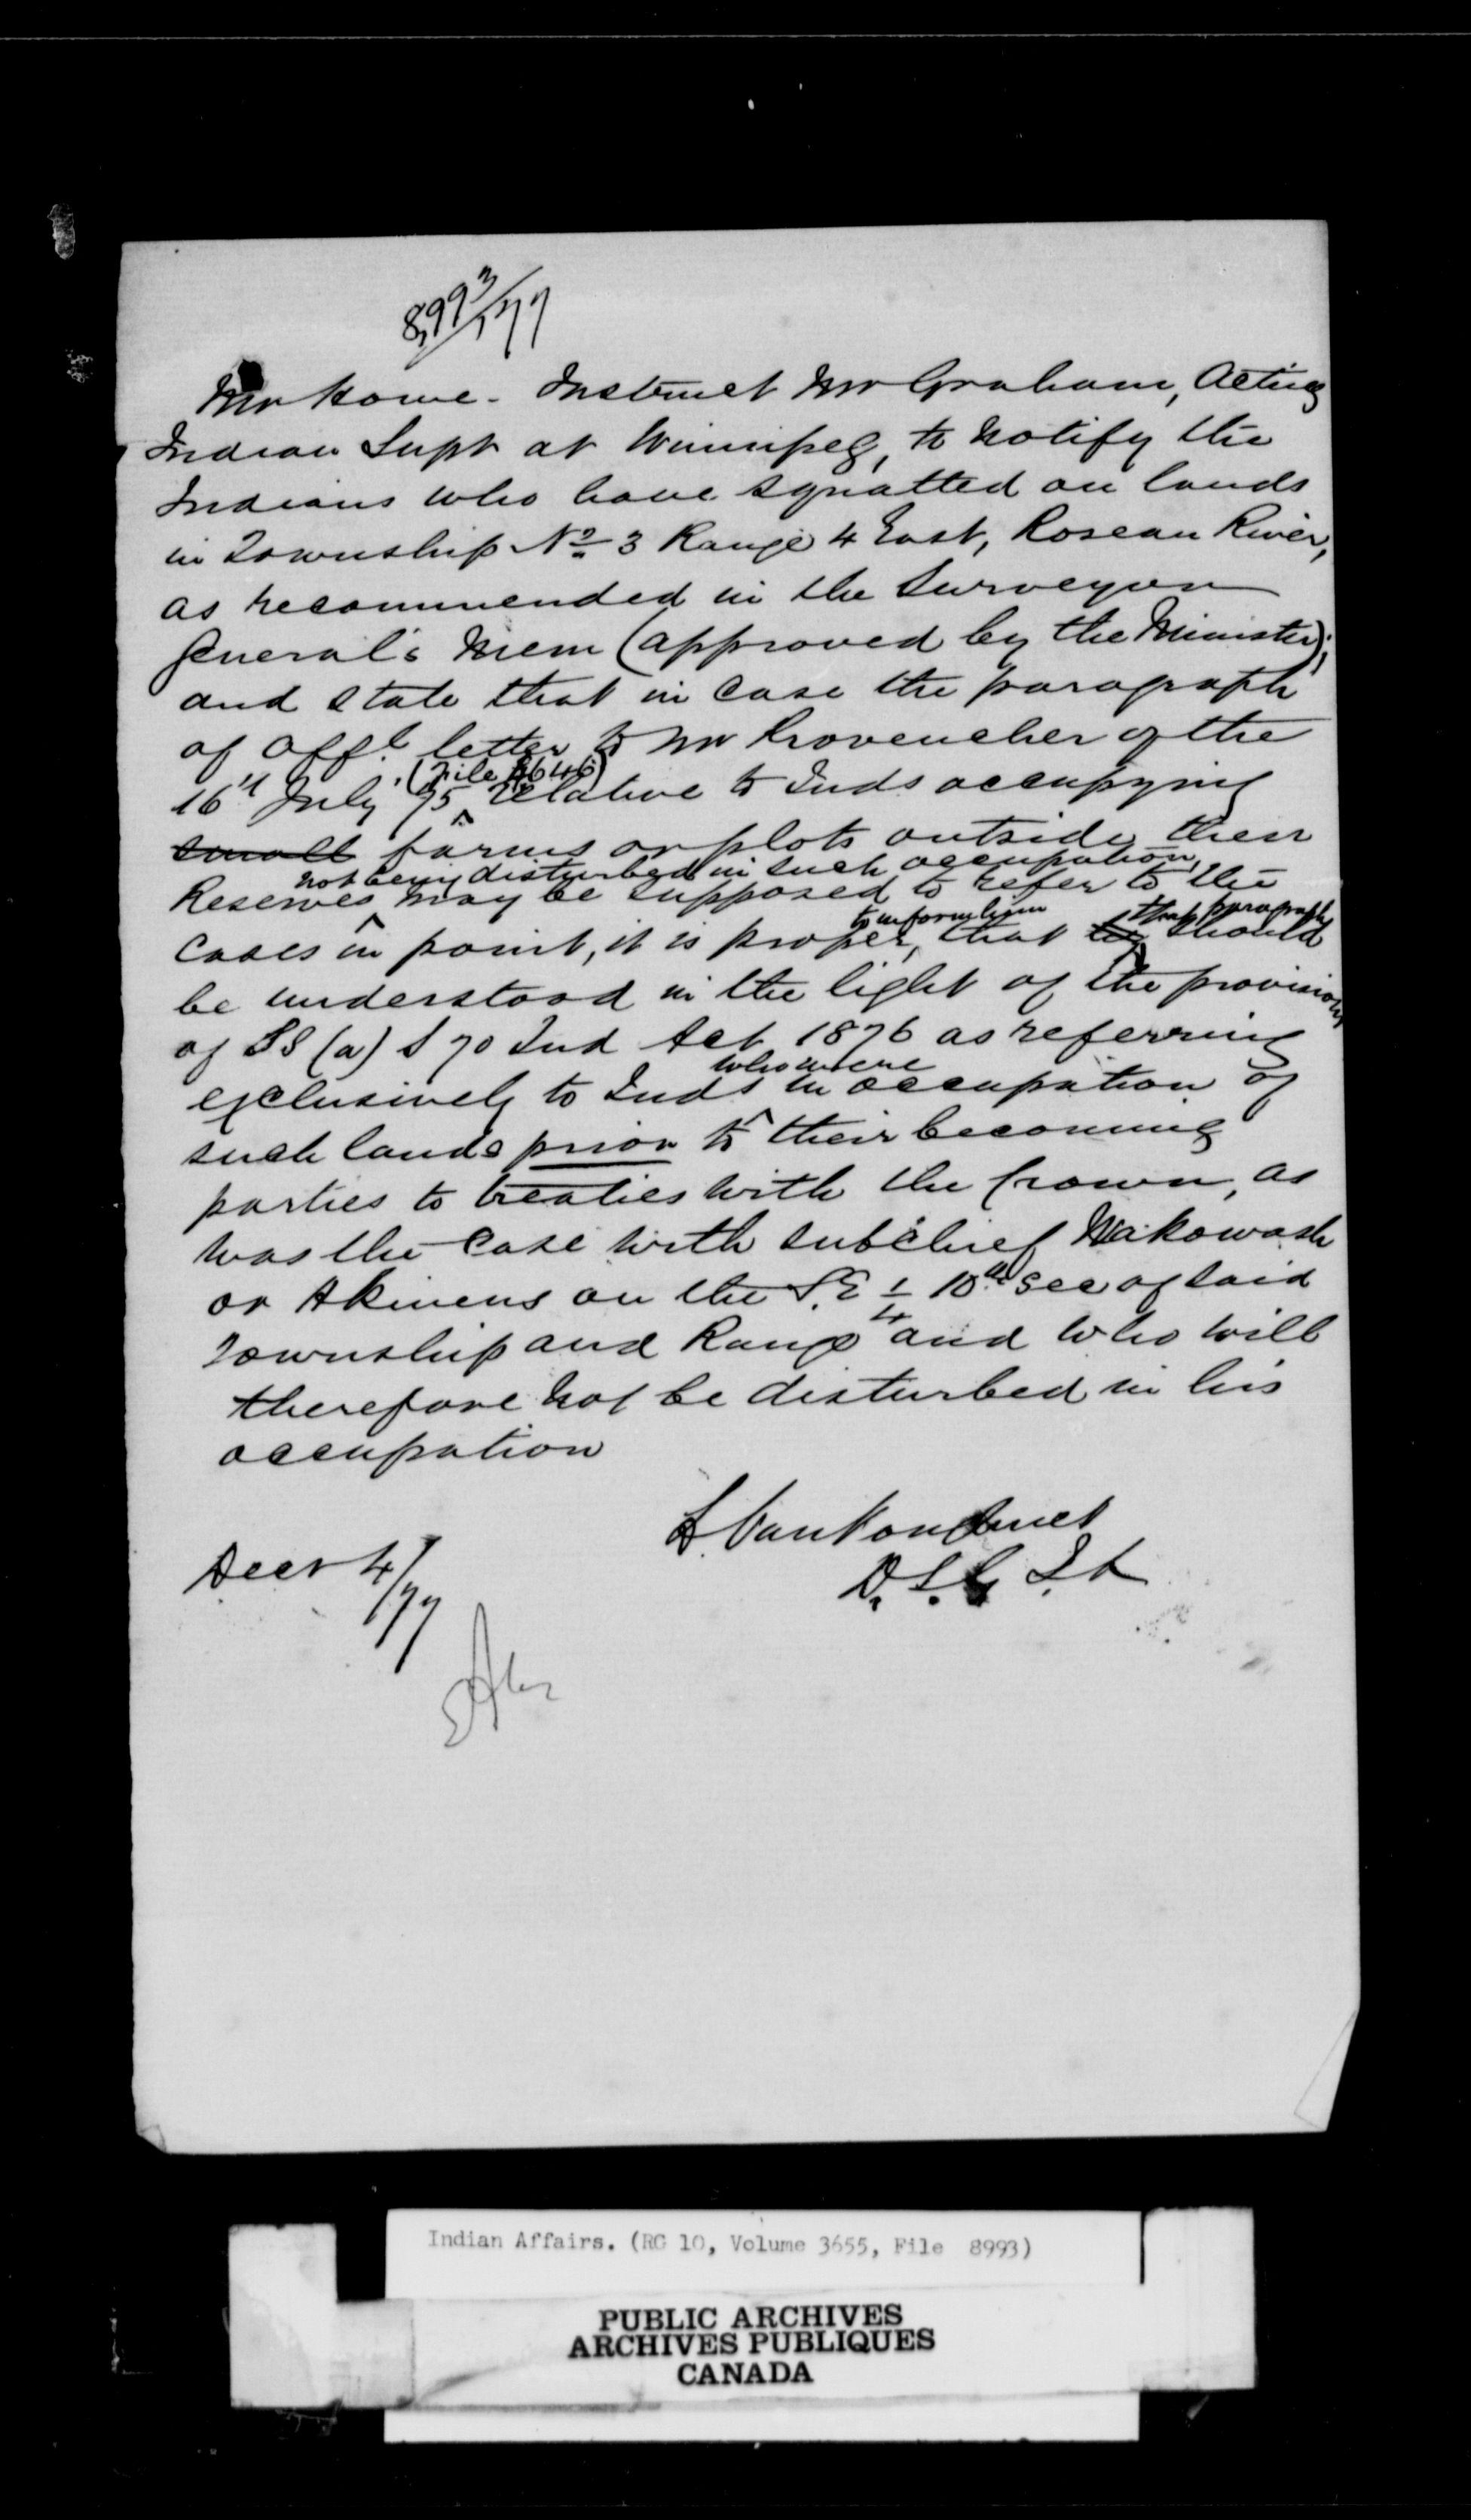 8993/77
Mr Howe. Instruct Mr Graham, Acting
Indian Supt at Winnipeg, to notify the
Indians who have squatted on lands
in Township No 3 Range 4 East, Roseau River,
as recommended in the Surveyor
General's Mem (approved by the Minister);
and state that in case the paragraph
of Offl letter to Mr Provencher of the
(File 4646)
16th July '75 relative to Inds occupying
small farms or plots outside their
not being disturbed in such occupation,
Reserves may be supposed to refer to the
to inform him that paragraph
cases in point, it is proper, that it should
be understood in the light of the provisions
of SS (a) S 70 Ind Act 1876 as referring
who were
exclusively to Inds in occupation of
such lands prior to their becoming
parties to treaties with the Crown, as
was the case with subchief Nakowash
or Akinens on the S.E 1/4 10th Sec of said
Township and Range and who will
therefore not be disturbed in his
occupation
L. VanKoughnet
D. S. G. I. A
Decr 4/77
Indian Affairs. (RG 10, Volume 3655, File 8993)
PUBLIC ARCHIVES
ARCHIVES PUBLIQUES
CANADA